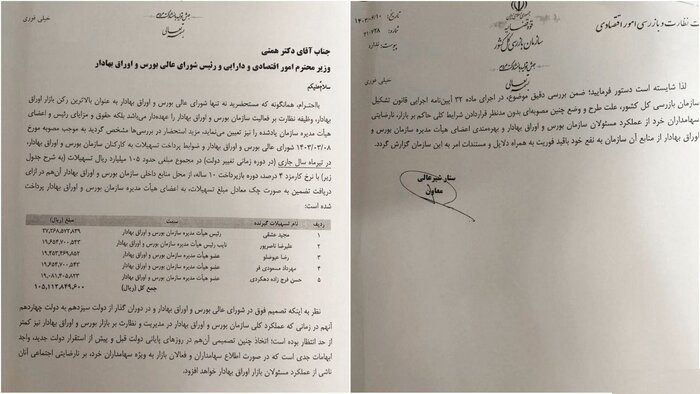 خیلی فوری
بسمه تعالی
جناب آقای دکتر همتی
وزیر محترم امور اقتصادی و دارایی و رئیس شورای عالی بورس و اوراق بهادار
سلام‌علیکم
بااحترام، همانگونه که مستحضرید نه تنها شورای عالی بورس و اوراق بهادار به عنوان بالاترین رکن بازار اوراق
بهادار، وظیفه نظارت بر فعالیت سازمان بورس و اوراق بهادار را عهده‌دار می‌باشد بلکه حقوق و مزایای رئیس و اعضای
هیأت مدیره سازمان یادشده را نیز تعیین می‌نماید، مزید استحضار در بررسی‌ها مشخص گردید به موجب مصوبه مورخ
۱۴۰۳/۰۳/۰۸ شورای عالی بورس و اوراق بهادار و ضوابط پرداخت تسهیلات به کارکنان سازمان بورس و اوراق بهادار،
در تیرماه سال جاری (در دوره زمانی تغییر دولت) در مجموع مبلغی حدود ۱۰۵ میلیارد ریال تسهیلات (به شرح جدول
زیر) با نرخ کارمزد ۴ درصد، دوره بازپرداخت ۱۰ ساله، از محل منابع داخلی سازمان بورس و اوراق بهادار آن‌هم در ازای
دریافت تضمین به صورت چک معادل مبلغ تسهیلات، به اعضای هیأت مدیره سازمان بورس و اوراق بهادار پرداخت
شده است:
ردیف نام تسهیلات گیرنده سمت مبلغ (ریال)
۱ مجید عشقی رئیس هیأت مدیره سازمان بورس و اوراق بهادار ۲۷,۲۶۸,۵۷۲,۸۳۹
۲ علیرضا ناصرپور نایب رئیس هیأت مدیره سازمان بورس و اوراق بهادار ۱۹,۶۵۴,۷۰۰,۵۴۳
۳ رضا عیوضلو عضو هیأت مدیره سازمان بورس و اوراق بهادار ۱۹,۴۵۳,۴۶۹,۸۵۲
۴ مهرداد مسعودی فر عضو هیأت مدیره سازمان بورس و اوراق بهادار ۱۹,۶۵۴,۷۰۰,۵۴۳
۵ حسن فرج زاده دهکردی عضو هیأت مدیره سازمان بورس و اوراق بهادار ۱۹,۰۸۱,۴۰۵,۸۲۳
جمع کل (ریال) ۱۰۵,۱۱۲,۸۴۹,۶۰۰
نظر به اینکه تصمیم فوق در شورای عالی بورس و اوراق بهادار و در دوران گذار از دولت سیزدهم به دولت چهاردهم
آنهم در زمانی که عملکرد کلی سازمان بورس و اوراق بهادار در مدیریت و نظارت بر بازار بورس و اوراق بهادار نیز کمتر
از حد انتظار بوده است؛ اتخاذ چنین تصمیمی آن‌هم در روزهای پایانی دولت قبل و پیش از استقرار دولت جدید، واجد
ابهامات جدی است که در صورت اطلاع سهامداران و فعالان بازار به ویژه سهامداران خرد، بر نارضایتی اجتماعی آنان
ناشی از عملکرد مسئولان بازار اوراق بهادار خواهد افزود.
ت نظارت و بازرسی امور اقتصادی
قوه قضائیه
سازمان بازرسی کل کشور
بسمه تعالی
تاریخ: ۱۴۰۳/۰۶/۱۰
پیوست: ندارد
خیلی فوری
لذا شایسته است دستور فرمایید؛ ضمن بررسی دقیق موضوع، در اجرای ماده ۳۲ آیین‌نامه اجرایی قانون تشکیل
سازمان بازرسی کل کشور، علت طرح و وضع چنین مصوبه‌ای بدون مدنظر قراردادن شرایط کلی حاکم بر بازار، نارضایتی
سهامداران خرد از عملکرد مسئولان سازمان بورس و اوراق بهادار و بهره‌مندی اعضای هیأت مدیره سازمان بورس و
اوراق بهادار از منابع آن سازمان به نفع خود باقید فوریت به همراه دلایل و مستندات امر به این سازمان گزارش گردد.
ستار شیرعالی
معاون